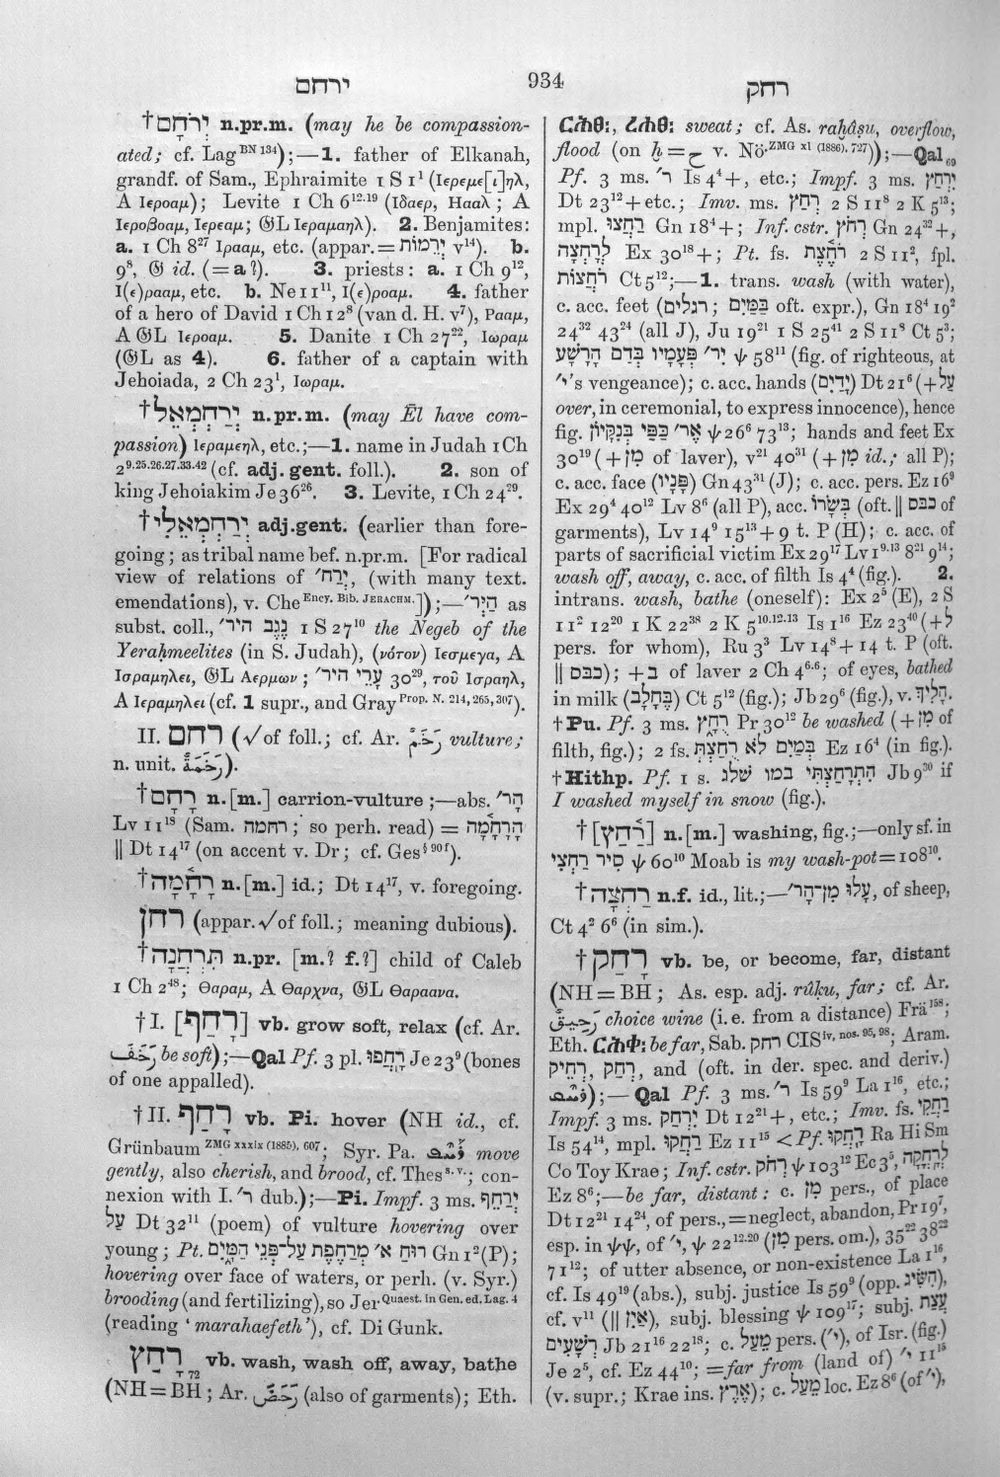 ירחם
934
רחק
†יְרֹחָם n.pr.m. (may he be compassion-
ated; cf. Lag BN 134);—1. father of Elkanah,
grandf. of Sam., Ephraimite 1 S 1¹ (Ιερεμε[ι]ηλ,
A Ιεροαμ); Levite 1 Ch 6¹²·¹⁹ (Ιδαερ, Ηααλ; A
Ιεροβοαμ, Ιερεαμ; 𝔊L Ιεραμαηλ). 2. Benjamites:
a. 1 Ch 8²⁷ Ιρααμ, etc. (appar. = יְרֵמוֹת v¹⁴). b.
9⁸, 𝔊 id. (= a?). 3. priests: a. 1 Ch 9¹²,
Ι(ε)ρααμ, etc. b. Ne 11¹¹, Ι(ε)ροαμ. 4. father
of a hero of David 1 Ch 12⁸ (van d. H. v⁷), Ρααμ,
A 𝔊L Ιεροαμ. 5. Danite 1 Ch 27²², Ιωραμ
(𝔊L as 4). 6. father of a captain with
Jehoiada, 2 Ch 23¹, Ιωραμ.
†יְרַחְמְאֵל n.pr.m. (may Ēl have com-
passion) Ιεραμεηλ, etc.;—1. name in Judah 1 Ch
2⁹·²⁵·²⁶·²⁷·³³·⁴² (cf. adj. gent. foll.). 2. son of
king Jehoiakim Je 36²⁶. 3. Levite, 1 Ch 24²⁹.
†יְרַחְמְאֵלִי adj.gent. (earlier than fore-
going; as tribal name bef. n.pr.m. [For radical
view of relations of יְרַח׳, (with many text.
emendations), v. Che Ency. Bib. JERACHM.]);—הַיְּר׳ as
subst. coll., נֶגֶב היר׳ 1 S 27¹⁰ the Negeb of the
Yeraḥmeelites (in S. Judah), (νότον) Ιεσμεγα, A
Ισραμηλει, 𝔊L Αερμων; עָרֵי היר׳ 30²⁹, τοῦ Ισραηλ,
A Ιεραμηλει (cf. 1 supr., and Gray Prop. N. 214, 265, 307).
II. רחם (√of foll.; cf. Ar. رَخَمٌ vulture;
n. unit. رَخَمَةٌ).
†רָחָם n.[m.] carrion-vulture;—abs. הָר׳
Lv 11¹⁸ (Sam. רחמה; so perh. read) = הָרָחָמָה
|| Dt 14¹⁷ (on accent v. Dr; cf. Ges § 90 f).
†רָחָמָה n.[m.] id.; Dt 14¹⁷, v. foregoing.
רחן (appar. √of foll.; meaning dubious).
†תִּרְחֲנָה n.pr. [m.? f.?] child of Caleb
1 Ch 2⁴⁸; Θαραμ, A Θαρχνα, 𝔊L Θαραανα.
†I. [רָחַף] vb. grow soft, relax (cf. Ar.
رَخَفَ be soft);—Qal Pf. 3 pl. רָחֲפוּ Je 23⁹ (bones
of one appalled).
†II. רָחַף vb. Pi. hover (NH id., cf.
Grünbaum ZMG xxxix (1885), 607; Syr. Pa. ܪܰܚܶܦ move
gently, also cherish, and brood, cf. Thes s.v.; con-
nexion with I. ר׳ dub.);—Pi. Impf. 3 ms. יְרַחֵף
עַל Dt 32¹¹ (poem) of vulture hovering over
young; Pt. רוּחַ א׳ מְרַחֶפֶת עַל־פְּנֵי הַמָּיִם Gn 1² (P);
hovering over face of waters, or perh. (v. Syr.)
brooding (and fertilizing), so Jer Quaest. in Gen. ed. Lag. 4
(reading ‘marahaefeth’), cf. Di Gunk.
רָחַץ ₇₂ vb. wash, wash off, away, bathe
(NH = BH; Ar. رَحَضَ (also of garments); Eth.
ርሕፀ:, ረሐፀ: sweat; cf. As. raḫâṣu, overflow,
flood (on ḫ = ح v. Nö ZMG xl (1886), 727));—Qal ₆₉
Pf. 3 ms. ר׳ Is 4⁴+, etc.; Impf. 3 ms. יִרְחַץ
Dt 23¹²+ etc.; Imv. ms. רְחַץ 2 S 11⁸ 2 K 5¹³;
mpl. רַחֲצוּ Gn 18⁴+; Inf. cstr. רְחֹץ Gn 24³²+,
לְרָחְצָה Ex 30¹⁸+; Pt. fs. רֹחֶצֶת 2 S 11², fpl.
רֹחֲצוֹת Ct 5¹²;—1. trans. wash (with water),
c. acc. feet (רגלים; בַּמַּיִם oft. expr.), Gn 18⁴ 19²
24³² 43²⁴ (all J), Ju 19²¹ 1 S 25⁴¹ 2 S 11⁸ Ct 5³;
יִר׳ פְּעָמָיו בְּדַם הָרָשָׁע ψ 58¹¹ (fig. of righteous, at
י׳’s vengeance); c. acc. hands (יָדַיִם) Dt 21⁶ (+עַל
over, in ceremonial, to express innocence), hence
fig. אֶר׳ כַּפַּי בְּנִקָּיוֹן ψ 26⁶ 73¹³; hands and feet Ex
30¹⁹ (+מִן of laver), v²¹ 40³¹ (+מִן id.; all P);
c. acc. face (פָּנָיו) Gn 43³¹ (J); c. acc. pers. Ez 16⁹
Ex 29⁴ 40¹² Lv 8⁶ (all P), acc. בְּשָׂרוֹ (oft. || כבס of
garments), Lv 14⁹ 15¹³ + 9 t. P (H); c. acc. of
parts of sacrificial victim Ex 29¹⁷ Lv 1⁹·¹³ 8²¹ 9¹⁴;
wash off, away, c. acc. of filth Is 4⁴ (fig.). 2.
intrans. wash, bathe (oneself): Ex 2⁵ (E), 2 S
11² 12²⁰ 1 K 22³⁸ 2 K 5¹⁰·¹²·¹³ Is 1¹⁶ Ez 23⁴⁰ (+לְ
pers. for whom), Ru 3³ Lv 14⁸ + 14 t. P (oft.
|| כבס); +בְּ of laver 2 Ch 4⁶·⁶; of eyes, bathed
in milk (בֶּחָלָב) Ct 5¹² (fig.); Jb 29⁶ (fig.), v. הָלִיךְ.
†Pu. Pf. 3 ms. רֻחָץ Pr 30¹² be washed (+מִן of
filth, fig.); 2 fs. בְּמַיִם לֹא רֻחַצְתְּ Ez 16⁴ (in fig.).
†Hithp. Pf. 1 s. הִתְרָחַצְתִּי במו שׁלג Jb 9³⁰ if
I washed myself in snow (fig.).
†[רַחַץ] n.[m.] washing, fig.;—only sf. in
סִיר רַחְצִי ψ 60¹⁰ Moab is my wash-pot = 108¹⁰.
†רַחְצָה n.f. id., lit.;—עָלוּ מִן־הָר׳, of sheep,
Ct 4² 6⁶ (in sim.).
†רָחַק vb. be, or become, far, distant
(NH = BH; As. esp. adj. rûḳu, far; cf. Ar.
رَحِيقٌ choice wine (i.e. from a distance) Frä¹⁵⁸;
Eth. ርሕቀ: be far, Sab. רחק CIS iv, nos. 95, 98; Aram.
רְחֵיק, רְחַק, and (oft. in der. spec. and deriv.)
ܪܚܩ);—Qal Pf. 3 ms. ר׳ Is 59⁹ La 1¹⁶, etc.;
Impf. 3 ms. יִרְחַק Dt 12²¹+, etc.; Imv. fs. רַחֲקִי
Is 54¹⁴, mpl. רַחֲקוּ Ez 11¹⁵ < Pf. רָחֲקוּ Ra Hi Sm
Co Toy Krae; Inf. cstr. רְחֹק ψ 103¹² Ec 3⁵, לְרָחֳקָה
Ez 8⁶;—be far, distant: c. מִן pers., of place
Dt 12²¹ 14²⁴, of pers., = neglect, abandon, Pr 19⁷,
esp. in ψψ, of י׳, ψ 22¹²·²⁰ (מִן pers. om.), 35²² 38²²
71¹²; of utter absence, or non-existence La 1¹⁶,
cf. Is 49¹⁹ (abs.), subj. justice Is 59⁹ (opp. הִשִּׂיג),
cf. v¹¹ (|| אַיִן), subj. blessing ψ 109¹⁷; subj. עֲצַת
רְשָׁעִים Jb 21¹⁶ 22¹⁸; c. מֵעַל pers. (י׳), of Isr. (fig.)
Je 2⁵, cf. Ez 44¹⁰; = far from (land of) י׳ 11¹⁵
(v. supr.; Krae ins. אֶרֶץ); c. מֵעַל loc. Ez 8⁶ (of י׳),